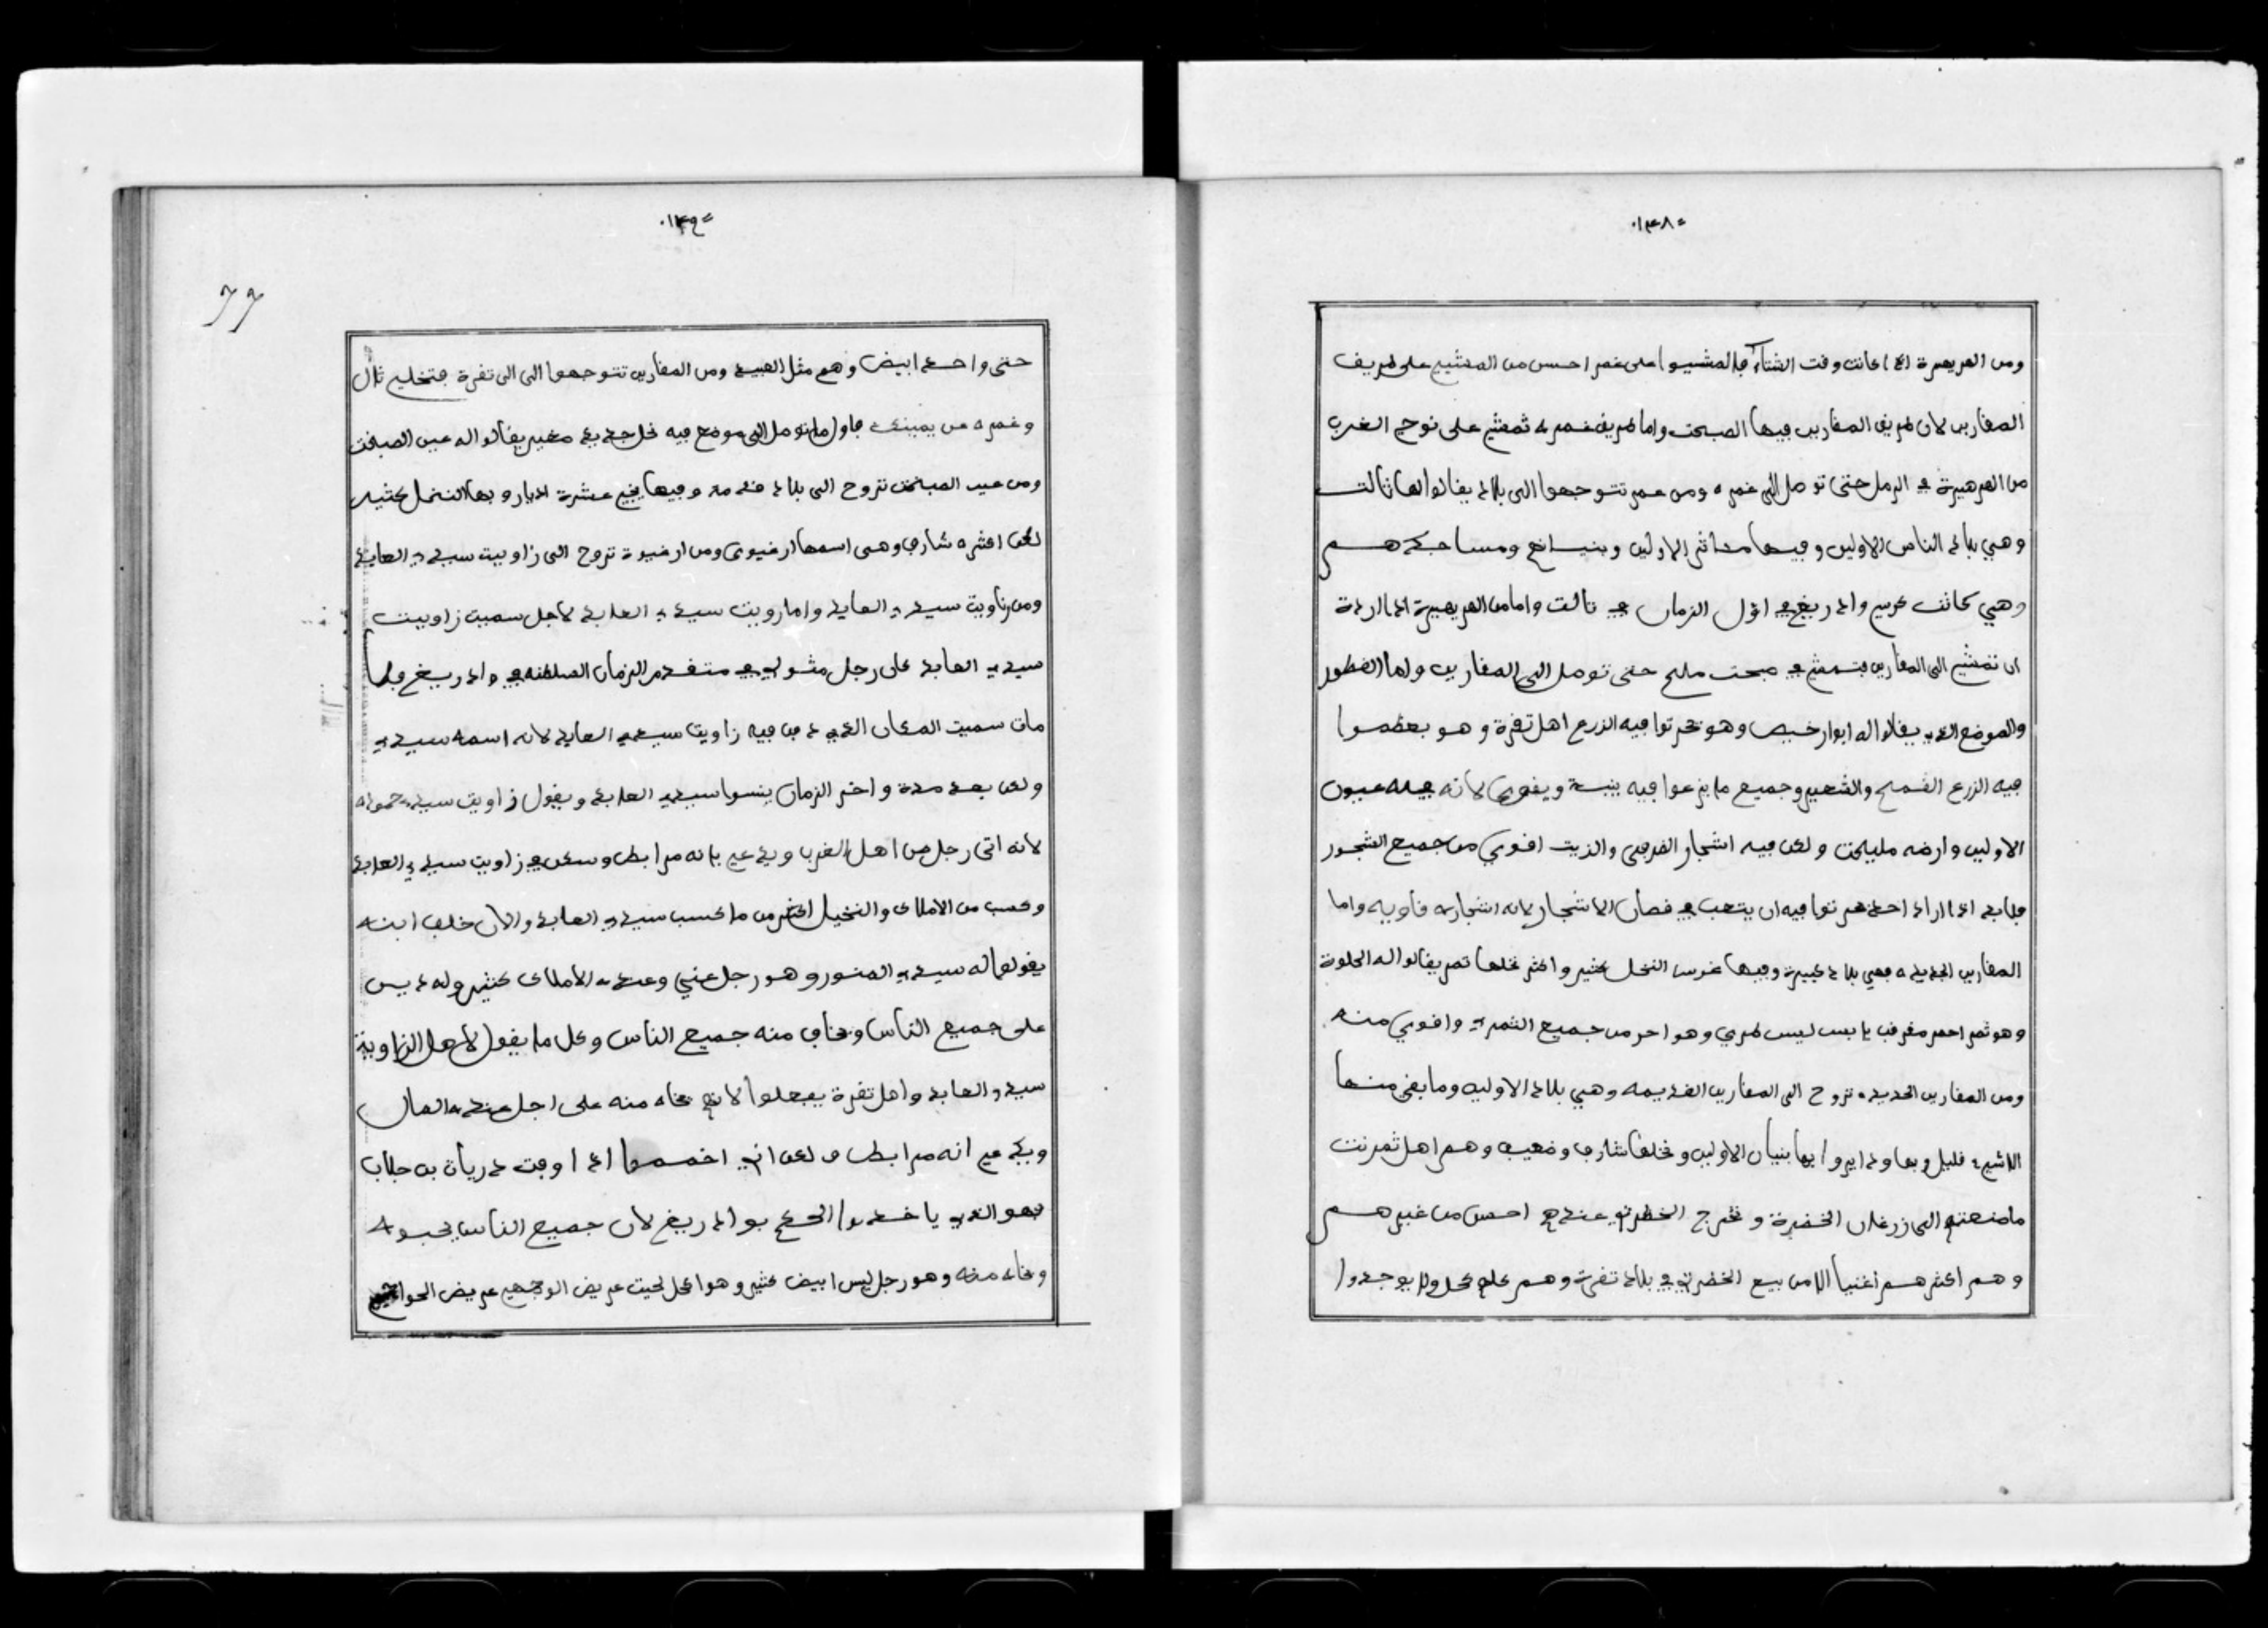 ١٤٨
ومن الهريهيرة اذا كانت وقت الشتاء فالمشيوا على غمر احسن من المشي على طريف
المقارين لان طريق المقارين فيها الصبخت واما طريق غمره ثمشي على نوحي الغرب
من الهرهيرة في الرمل حتى توصل الى غمره ومن غمر تتوجهوا الى بلاد يقالوا لها تالت
وهي بلاد الناس الاولين وفيها مداثر الاولين وبنيانهم ومساجدهم
وهي كانت كرسي واد ريغ في اول الزمان في تالت واما من الهريهيرة اذا اردة
ان تمشي الى المقارين فتمشي في صبخت مليح حتى توصل الى المقارين واما الفطور
والموضع الذي يقالوا له ابوارخيص وهو يحرتوا فيه الزرع اهل تقرة وهو بعظموا
فيه الزرع القمح والشعير وجميع ما يزرعوا فيه ينبت ويقوى لانه فيله عيون
الاولين وارضه مليحت ولكن فيه اشجار القرقى والزيت اقوي من جميع الشجور
فلابد اذا اراد احد يحرتوا فيه ان يتعب في قصان الاشجار لانه اشجاره قاويه واما
المقارين الجديده فهي بلاد كبيرة وفيها غرس النخل كثير واكثر نخلها تمر يقالوا له الحلوة
وهو ثمر احمر مغرف يابس ليس طري وهو احر من جميع الثمري واقوي منه
ومن المقارين الجديده تروح الى المقارين القديمه وهي بلاد الاوليه وما بقى منها
الاشيء قليل وبها بنيان الاولين ونخلها شارف وضعيف وهم اهل ثمرنت
ما صنعتهم الى زرعان الخضرة وتخرج الخظرة عندهم احسن من غيرهم
وهم اكثرهم اغنيا الا من بيع الخضرة في بلاد تقرت وهم كحل ولا يوجدوا
١٤٩
77
حتى واحد ابيض وهم مثل العبيد ومن المقارين تتوجهوا الى الى تقرة فتخلي تال
وغمره من يمينك فاول ما توصل الى موضع فيه خليج صغير يقالوا له عين الصبخت
ومن عين الصبخت تروح الى بلاد وفيها عشرة اديار وبها النخل كثير
لكن اكثره شارف وهى اسمها ارغيوى ومن ارغيوة تروح الى زاويت سيدي العابد
ومن زاويت سيدي العابد واما زويت سيدي العابد لاجل سميت زاويت
سيدي العابد كان رجل مثولي في متقدم الزمان السلطنه في واد ريغ فلما
مات سميت المكان الذي دفن فيه زاويت سيدي العابد لانه اسمه سيدي
ولكن بعد مدة واخر الزمان ينسوا سيدي العابد ويقول زاويت سيدي حموله
لانه اتى رجل من اهل الغرب ويدعي بانه مرابط وسكن في زاويت سيدي العابد
وكسب من الاملاك والنخيل اكثر من ما كسب سيدي العابد والان خلف ابنه
يقولوا له سيدي المنور وهو رجل غني وعنده الاملاك كثير وله دبس
على جميع الناس وتخاف منه جميع الناس وكل ما يقول لاهل الزاوية
سيدي العابد واهل تقرة يفعلوا لانهم تخاف منه على اجل عنده المال
ويدعي انه مرابط ولكن اذا اوقت درياة بن جلاب
فهو الذي ياخدوا الحكم بواد ريغ لان جميع الناس يحبوه
وتخاف منه وهو رجل ليس ابيض كثير وهو اكحل لحيت عريض الوجهي عريض الحواجي